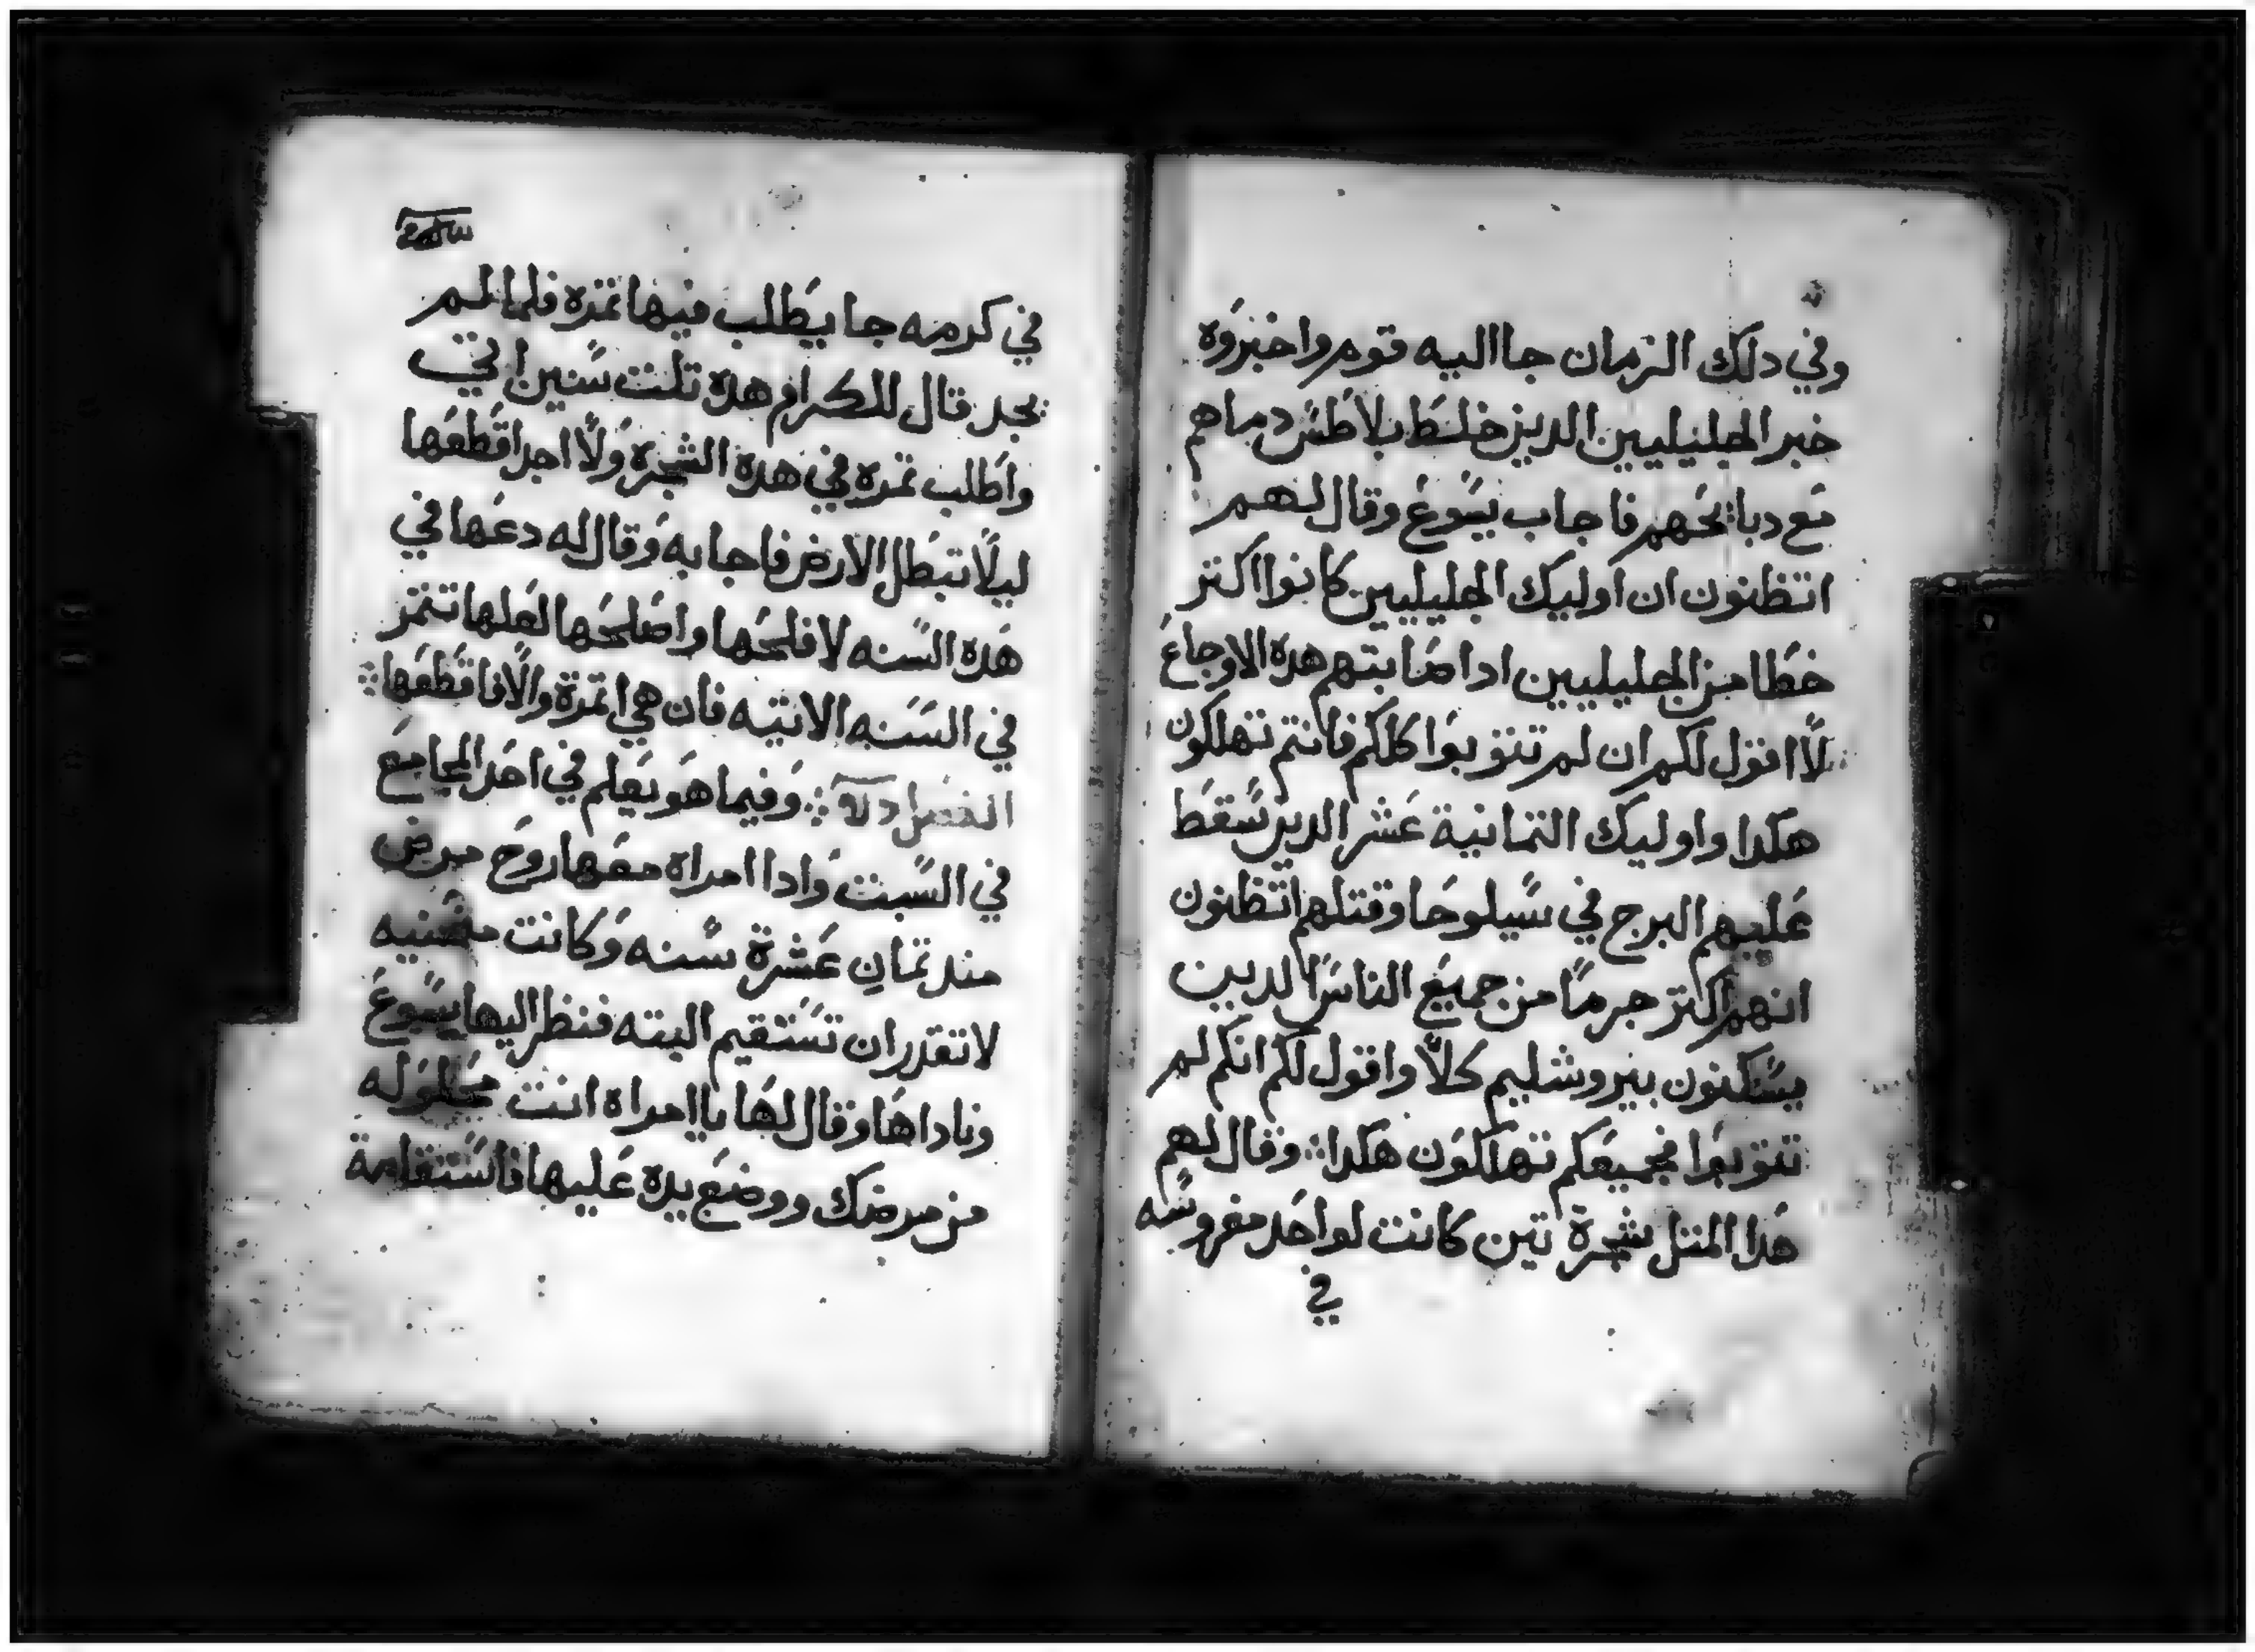 وفي دلك الزمان جا اليه قوم واخبروه
خبر الجليليين الدين خلط بلاطس دماهم
مع دبايحهم فاجاب يسوع وقال لهم
اتظنون ان اوليك الجليليين كانوا اكتر
خطا من الجليليين ادا صابتهم هده الاوجاع
لا اقول لكم ان لم تتوبوا كلكم فانتم تهلكون
هكدا واوليك التمانية عشر الدين سقط
عليهم البرج في سيلوحا وقتلهم اتظنون
انهم اكتر جرما من جميع الناس الدين
يسكنون بيروشليم كلا واقول لكم انكم لم
تتوبوا فجميعكم تهلكون هكدا ⁘ وقال لهم
هدا المتل شجرة تين كانت لواحد مغروسه
في
في كرمه جا يطلب فيها تمره فلما لم
يجد قال للكرام هده تلت سنين اتي
واطلب تمره في هده الشجره ولا اجد اقطعها
ليلا تبطل الارض فاجابه وقال له دعها في
هده السنه لافلحها واصلحها لعلها تتمر
في السنه الاتيه فان هي اتمرة والا فاقطعها ⁘
الفصل ⁘ وفيما هو يعلم في احد المجامع
في السبت وادا امراه معها روح مرض
مند تمان عشرة سنه وكانت منحنيه
لا تقدر ان تستقيم البته فنظر اليها يسوع
وناداها وقال لها يا امراه انت محلوله
من مرضك ووضع يده عليها فاستقامة